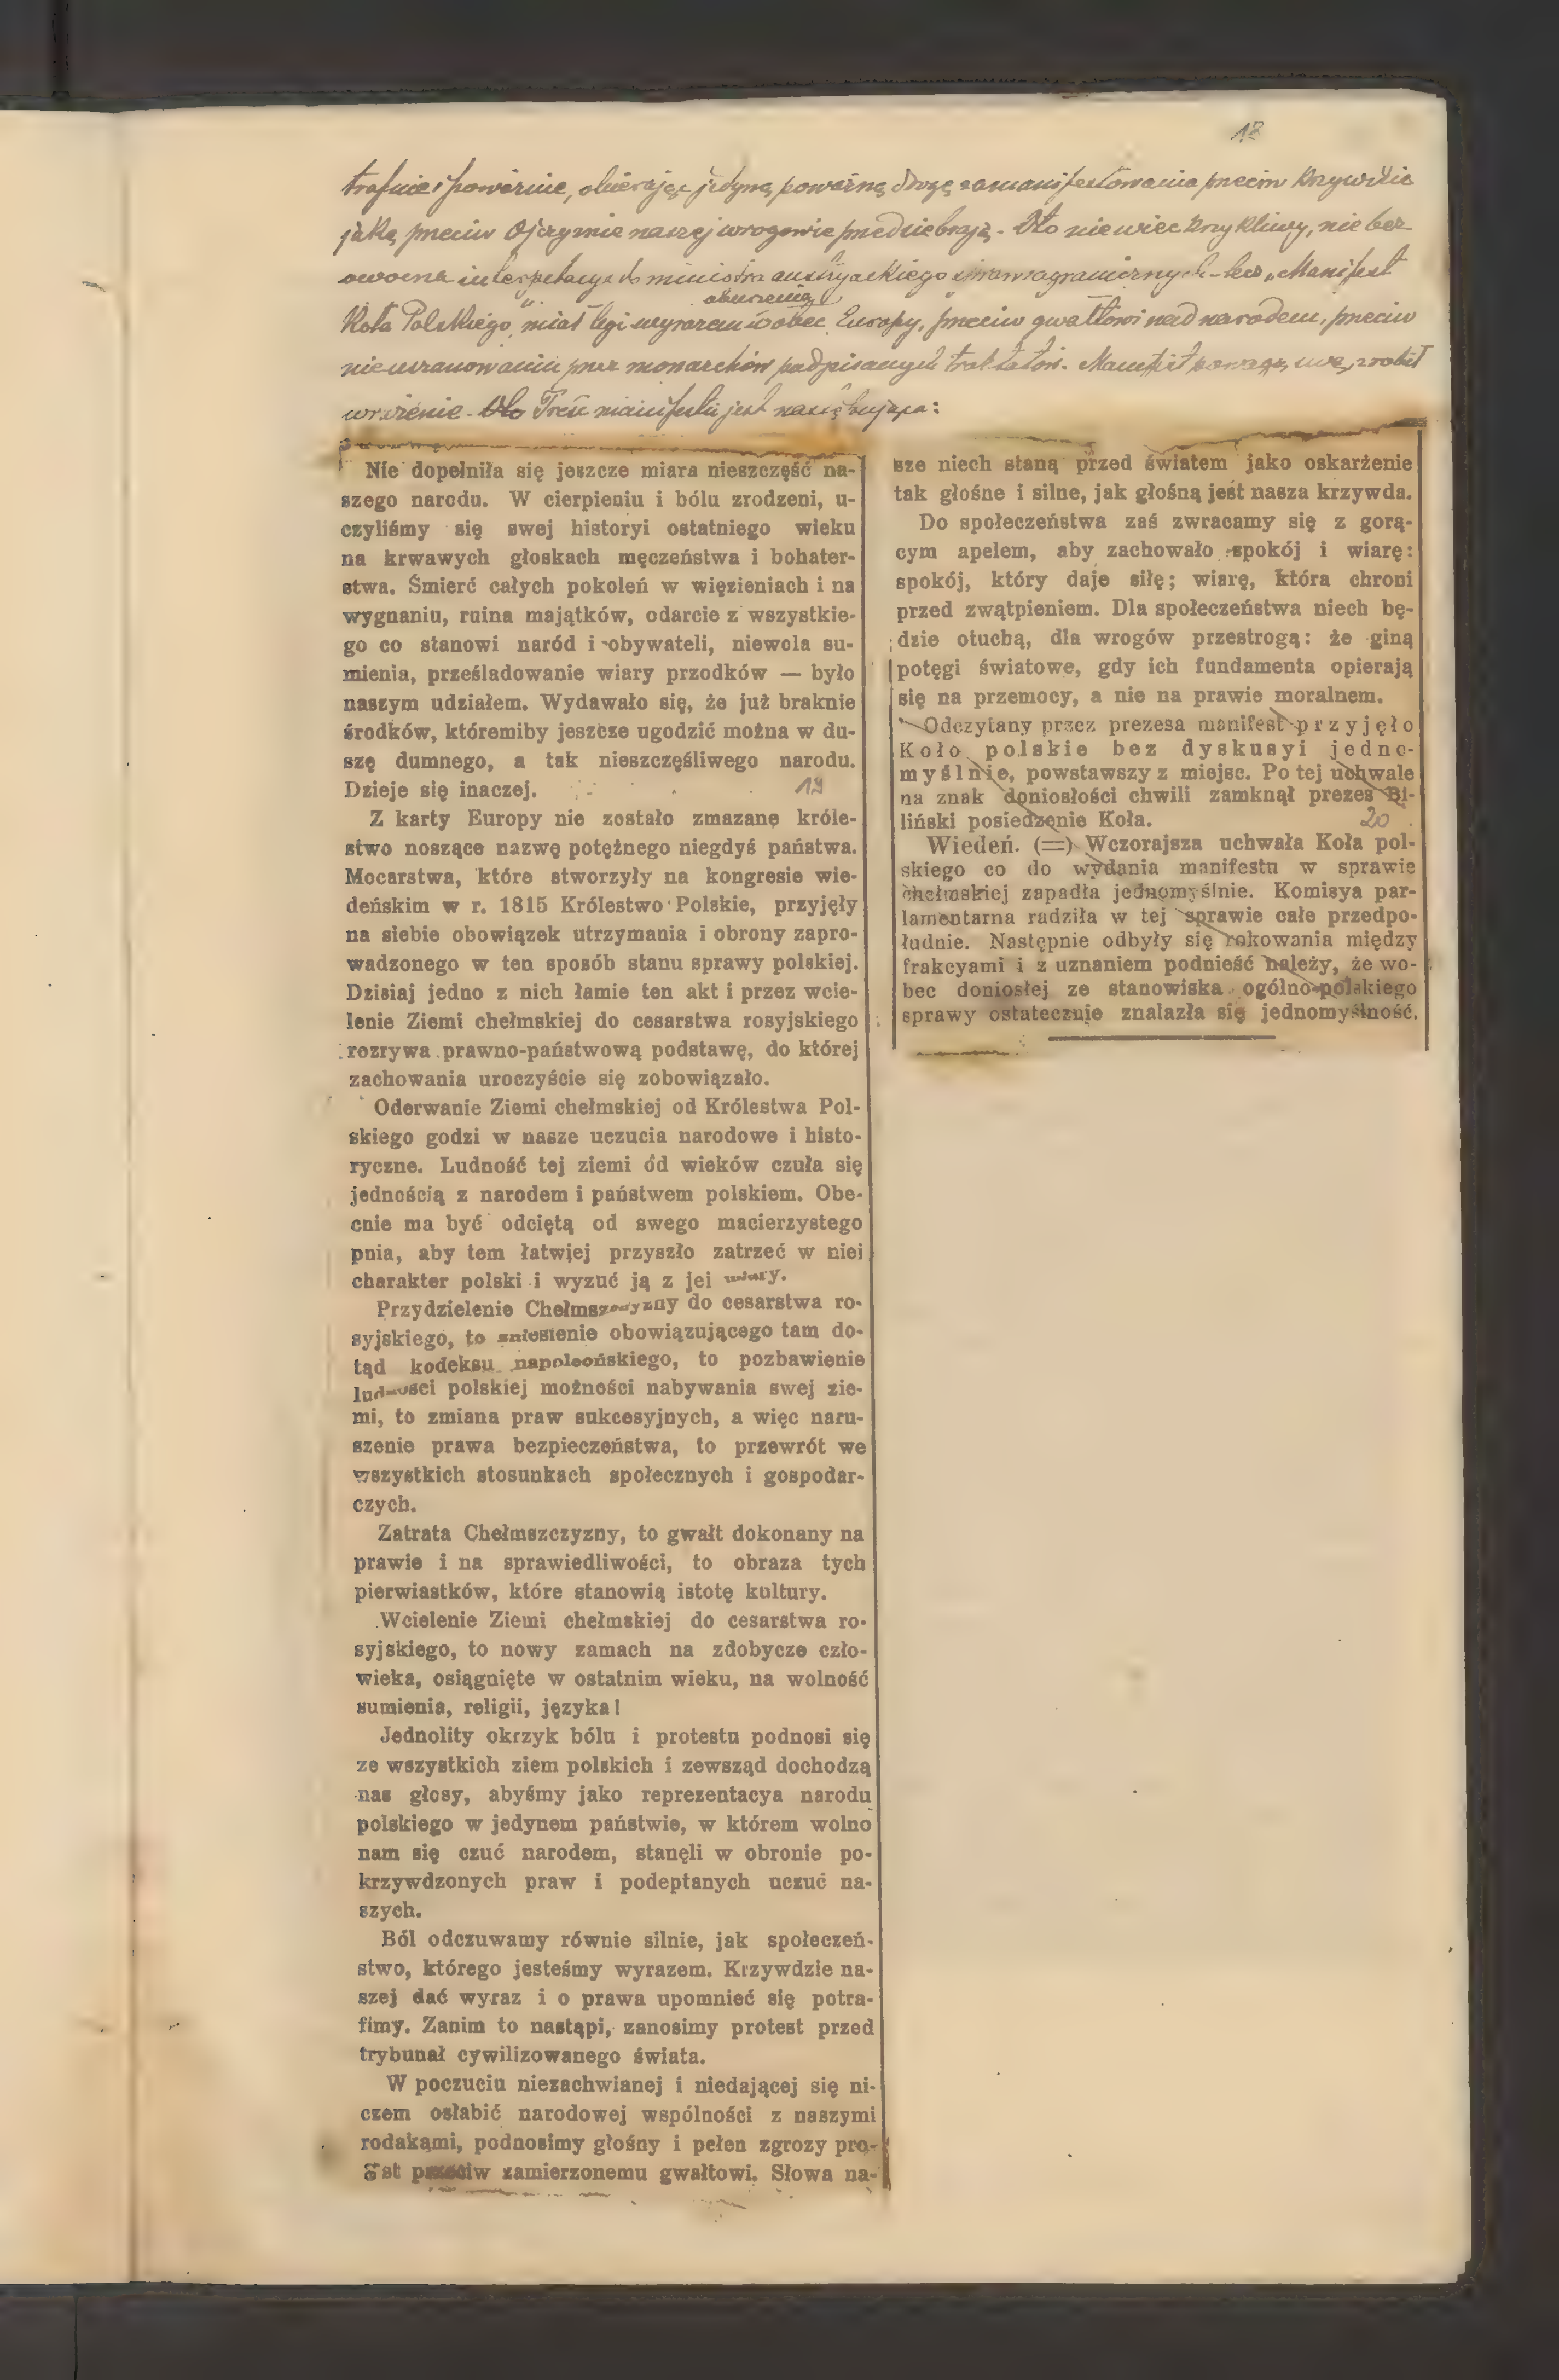 18
trafnie i poważnie, obierając jedyną poważną drogę zamanifestowania przeciw krzywdzie
jaką przeciw Ojczyźnie naszej wrogowie przedsiębrają. Oto nie wiec krzykliwy, nie bez
owocna interpelacya do ministra austryackiego spraw zagranicznych - lecz „Manifest
oburzenia
Koła Polskiego" miał być wyrazem wobec Europy, przeciw gwałtowi nad narodem, przeciw
nieuszanowaniu przez monarchów podpisanych traktatów. Manifest powagą swą zrobił
wrażenie. Oto Treść manifestu jest następująca:
Nie dopełniła się jeszcze miara nieszczęść na-
szego narodu. W cierpieniu i bólu zrodzeni, u-
czyliśmy się swej historyi ostatniego wieku
na krwawych głoskach męczeństwa i bohater-
stwa. Śmierć całych pokoleń w więzieniach i na
wygnaniu, ruina majątków, odarcie z wszystkie-
go co stanowi naród i obywateli, niewola su-
mienia, prześladowanie wiary przodków — było
naszym udziałem. Wydawało się, że już braknie
środków, któremiby jeszcze ugodzić można w du-
szę dumnego, a tak nieszczęśliwego narodu.
Dzieje się inaczej. 19
Z karty Europy nie zostało zmazane króle-
stwo noszące nazwę potężnego niegdyś państwa.
Mocarstwa, które stworzyły na kongresie wie-
deńskim w r. 1815 Królestwo Polskie, przyjęły
na siebie obowiązek utrzymania i obrony zapro-
wadzonego w ten sposób stanu sprawy polskiej.
Dzisiaj jedno z nich łamie ten akt i przez wcie-
lenie Ziemi chełmskiej do cesarstwa rosyjskiego
rozrywa prawno-państwową podstawę, do której
zachowania uroczyście się zobowiązało.
Oderwanie Ziemi chełmskiej od Królestwa Pol-
skiego godzi w nasze uczucia narodowe i histo-
ryczne. Ludność tej ziemi od wieków czuła się
jednością z narodem i państwem polskiem. Obe-
cnie ma być odciętą od swego macierzystego
pnia, aby tem łatwiej przyszło zatrzeć w niej
charakter polski i wyzuć ją z jej wiary.
Przydzielenie Chełmszczyzny do cesarstwa ro-
syjskiego, to zniesienie obowiązującego tam do-
tąd kodeksu napoleońskiego, to pozbawienie
ludności polskiej możności nabywania swej zie-
mi, to zmiana praw sukcesyjnych, a więc naru-
szenie prawa bezpieczeństwa, to przewrót we
wszystkich stosunkach społecznych i gospodar-
czych.
Zatrata Chełmszczyzny, to gwałt dokonany na
prawie i na sprawiedliwości, to obraza tych
pierwiastków, które stanowią istotę kultury.
Wcielenie Ziemi chełmskiej do cesarstwa ro-
syjskiego, to nowy zamach na zdobycze czło-
wieka, osiągnięte w ostatnim wieku, na wolność
sumienia, religii, języka!
Jednolity okrzyk bólu i protestu podnosi się
ze wszystkich ziem polskich i zewsząd dochodzą
nas głosy, abyśmy jako reprezentacya narodu
polskiego w jedynem państwie, w którem wolno
nam się czuć narodem, stanęli w obronie po-
krzywdzonych praw i podeptanych uczuć na-
szych.
Ból odczuwamy równie silnie, jak społeczeń-
stwo, którego jesteśmy wyrazem. Krzywdzie na-
szej dać wyraz i o prawa upomnieć się potra-
fimy. Zanim to nastąpi, zanosimy protest przed
trybunał cywilizowanego świata.
W poczuciu niezachwianej i niedającej się ni-
czem osłabić narodowej wspólności z naszymi
rodakami, podnosimy głośny i pełen zgrozy pro-
est przeciw zamierzonemu gwałtowi. Słowa na-
sze niech staną przed światem jako oskarżenie
tak głośne i silne, jak głośną jest nasza krzywda.
Do społeczeństwa zaś zwracamy się z gorą-
cym apelem, aby zachowało spokój i wiarę:
spokój, który daje siłę; wiarę, która chroni
przed zwątpieniem. Dla społeczeństwa niech bę-
dzie otuchą, dla wrogów przestrogą: że giną
potęgi światowe, gdy ich fundamenta opierają
się na przemocy, a nie na prawie moralnem.
Odczytany przez prezesa manifest przyjęło
Koło polskie bez dyskusyi jedno-
myślnie, powstawszy z miejsc. Po tej uchwale
na znak doniosłości chwili zamknął prezes Bi-
liński posiedzenie Koła. 20
Wiedeń. (=) Wczorajsza uchwała Koła pol-
skiego co do wydania manifestu w sprawie
chełmskiej zapadła jednomyślnie. Komisya par-
lamentarna radziła w tej sprawie całe przedpo-
łudnie. Następnie odbyły się rokowania między
frakcyami i z uznaniem podnieść należy, że wo-
bec doniosłej ze stanowiska ogólno-polskiego
sprawy ostatecznie znalazła się jednomyślność.